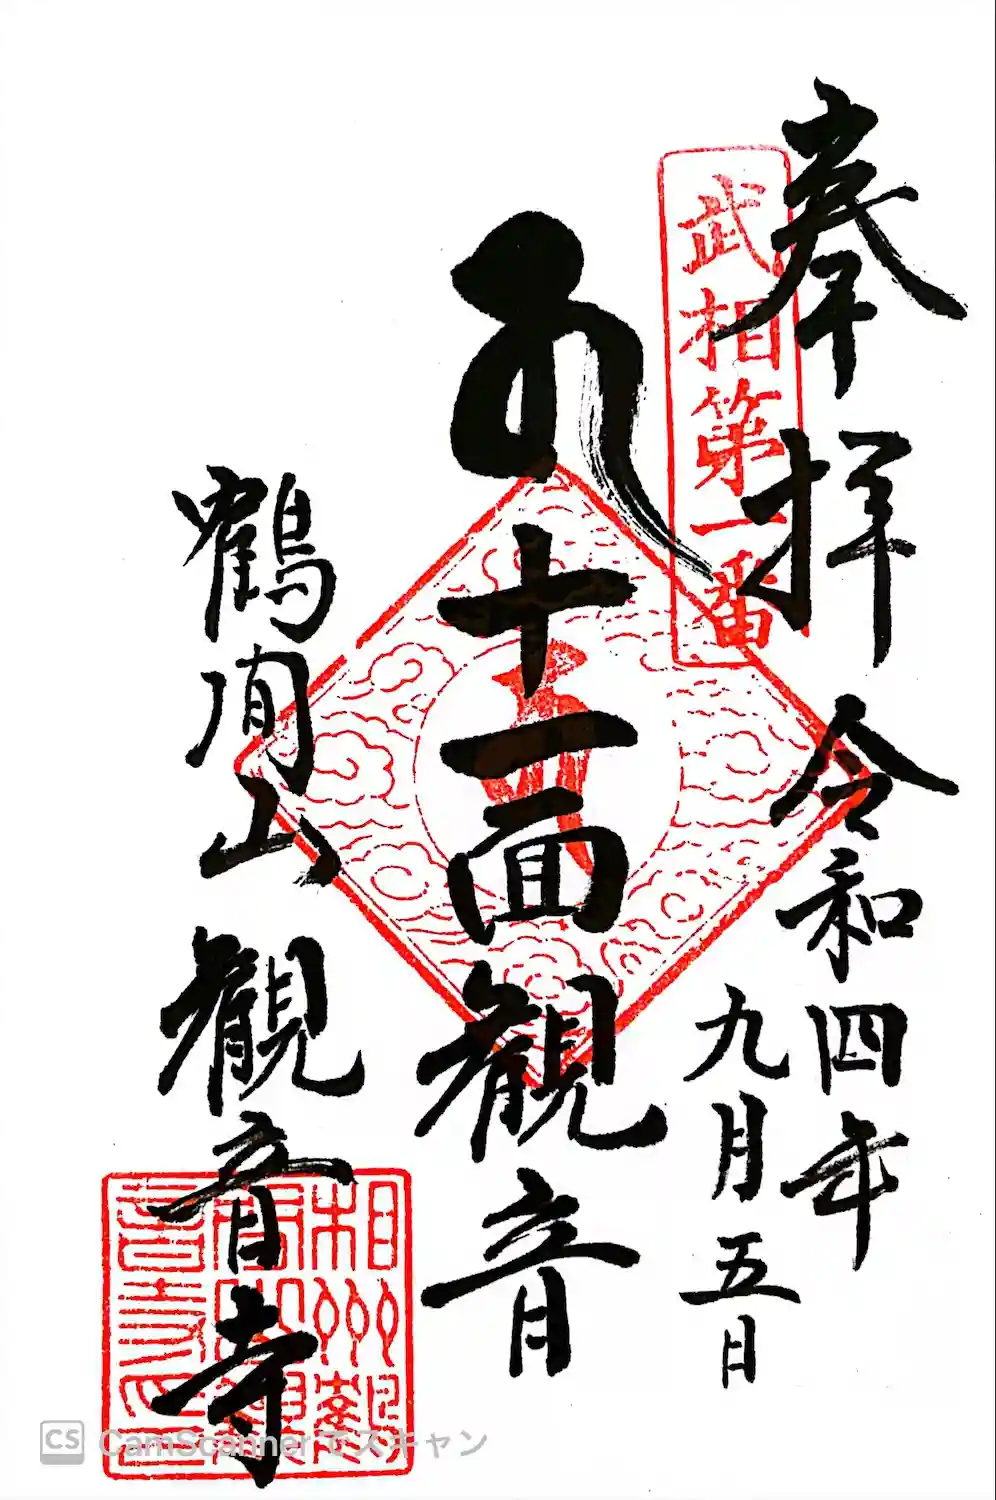 奉拝
令和四年
九月五日
武相第一番
十一面観音
鶴间山
観音寺
CS CamScannerでスキャン